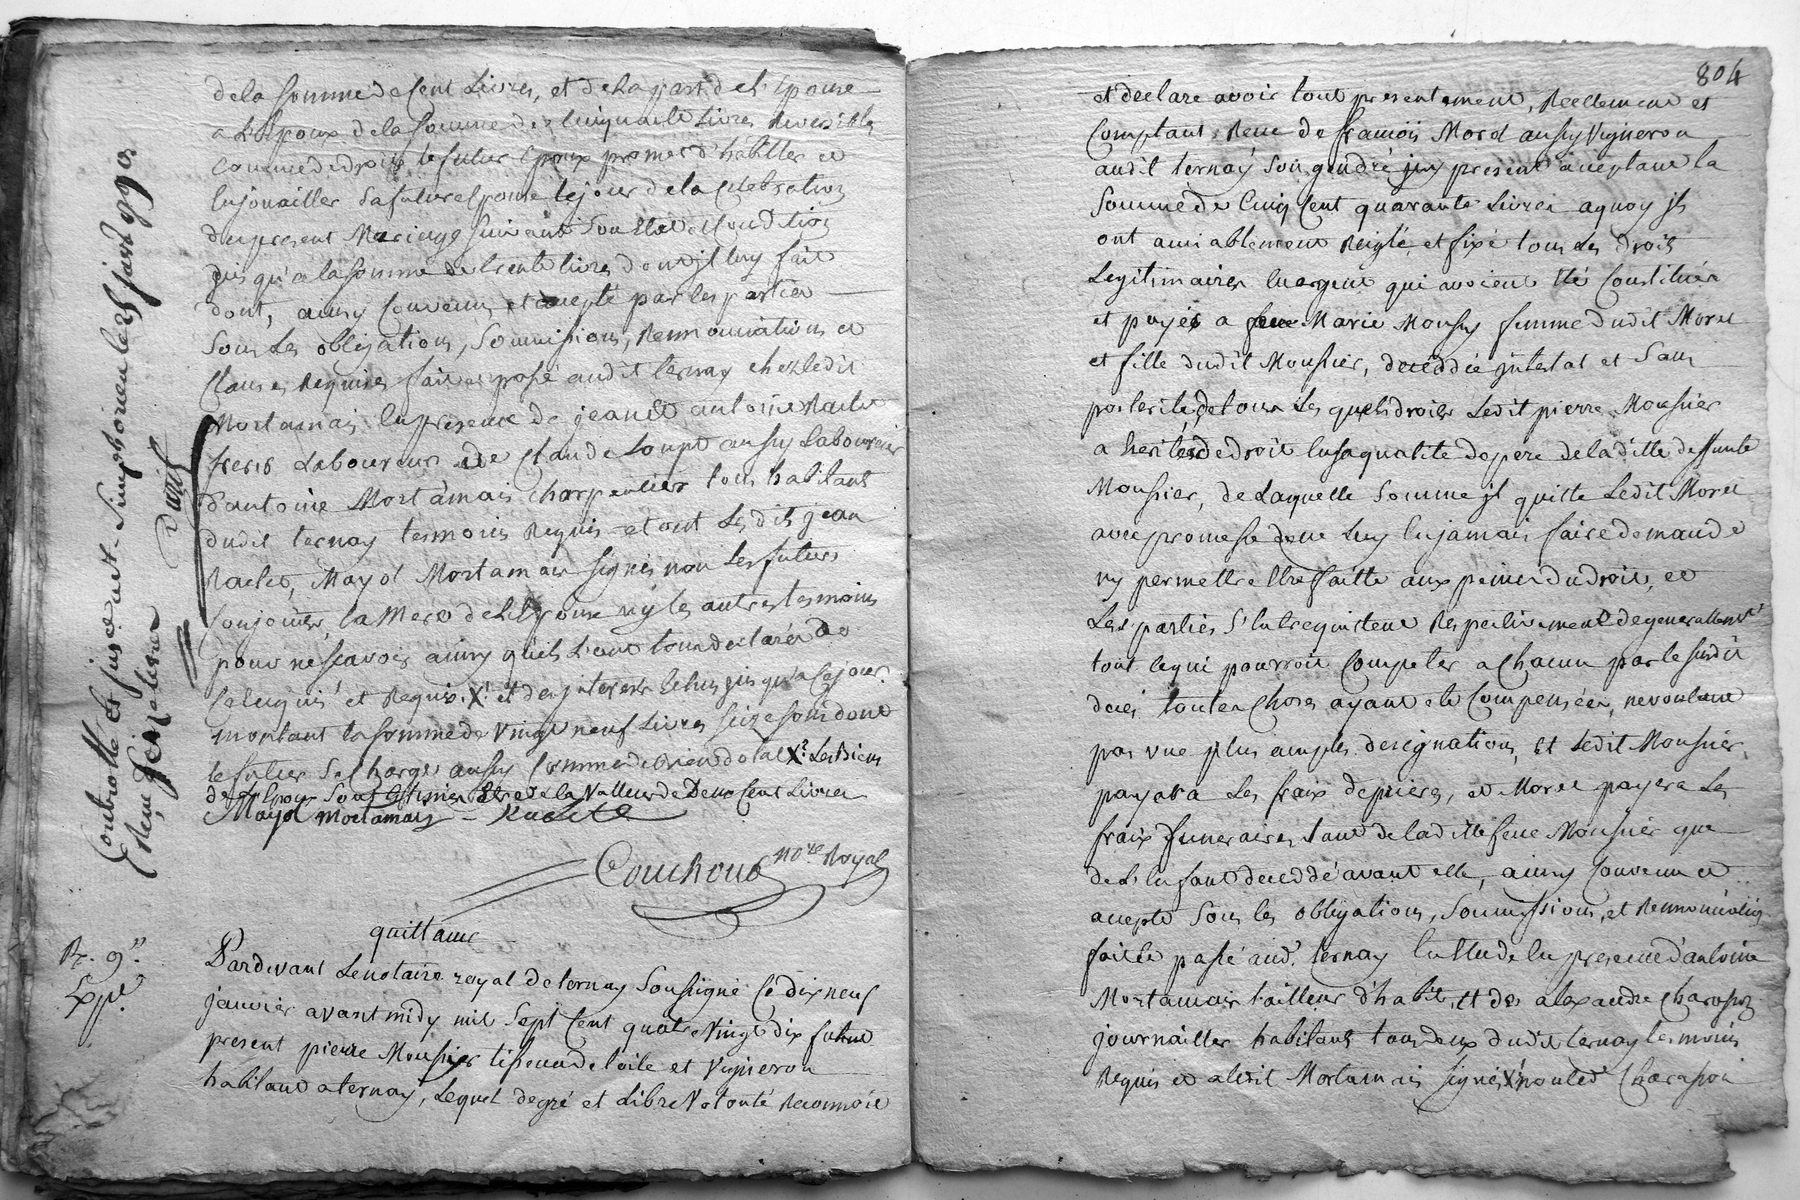 de la somme de Cent Livres, et de la part de l'Epouse
a L'Epoux de la somme de Cinquante Livres Reversibles
comme de droit, le futur Epoux promet d'habiller et
Enjouailler sa future Epouse le jour de la Celebration
du present Mariage suivant son Etat et Condition
jusqu'a la somme de trente livres dont jl luy fait
dont, ainsy Convenu et accepté par les parties
Sous Les obligations, Soumissions, Rennonciations et
Clauses Requises fait et passé audit ternay chez ledit
Mortamais En presence de jean et antoine Raclet
freres Laboureurs de Claude Loupt aussy Laboureur
d'antoine Mortamais charpentier tous habitants
dudit ternay temoins Requis et ont Les dits jean
Raclet, Mayol Mortamais signés non Les futurs
Conjoints, la Mere de L'Epouse ny les autres temoins
pour ne scavoir ainsy qu'ils L'ont tous declarés de
ce Enquis et Requis. X. et des jnterets Echus jusqu'a ce jour
montant la somme de vingt neuf Livres seize sous dont
le futur se Charge aussy Comme de bien dotal X. Les Biens
de L'Epoux sont Estimés Etre de la Valleur de Deux Cent Livres
Mayol mortamais Raclet
Couchoud no.re Royal
Controllé et jnsinué a St. Simphorien le 25 janv. 1790
Reçu
quittance
R. 9.s
Exp.é
Pardevant Le notaire royal de ternay Soussigné Ce dix neuf
janvier avant midy mil Sept Cent quatre Vingt dix fut
present pierre Mousier tisseur de toile et Vigneron
habitant a ternay, Lequel de gré et Libre Volonté Reconnoit
804
et declare avoir tout presentement, Reellement et
Comptant Reçu de francois Morel aussy Vigneron
audit ternay son gendre jcy present acceptant la
Somme de Cinq Cent quarante Livres a quoy jls
ont amiablement Reiglé et fixé tous Les droits
Legitimaires En argent qui avoient Eté Constitués
et payés a feue Marie Mousier femme dudit Morel
et fille dudit Mousier, deceddée jntestat et Sans
posterité, de tous Les quels droits Ledit pierre Mousier
a herités de droit En sa qualité de pere de la ditte deffunte
Mousier, de Laquelle Somme jl quitte Ledit Morel
avec promesse de ne Luy En jamais faire demande
ny permettre Etre faitte aux peines du droit, et
Les parties S'Entrequittent Respectivement de generallement
tout ce qui pourroit Competer a Chacun par le susdit
deces toutes Choses ayant eté Compensées, ne voulant
pas vue plus amples designations, Et Ledit Mousier
payera Les fraix des presentes, et Morel payera Les
fraix funeraires tant de la ditte feue Mousier que
de L'Enfant deceddé avant elle, ainsy Convenu et
accepté Sous les obligations, Soumissions, et Rennonciations
fait et passé aud. ternay En Etude En presence d'antoine
Mortamais tailleur d'habits, et de alexandre Charasson
journallier habitants tous deux dudit ternay temoins
Requis et a ledit Mortamais signé, X non led. Charasson